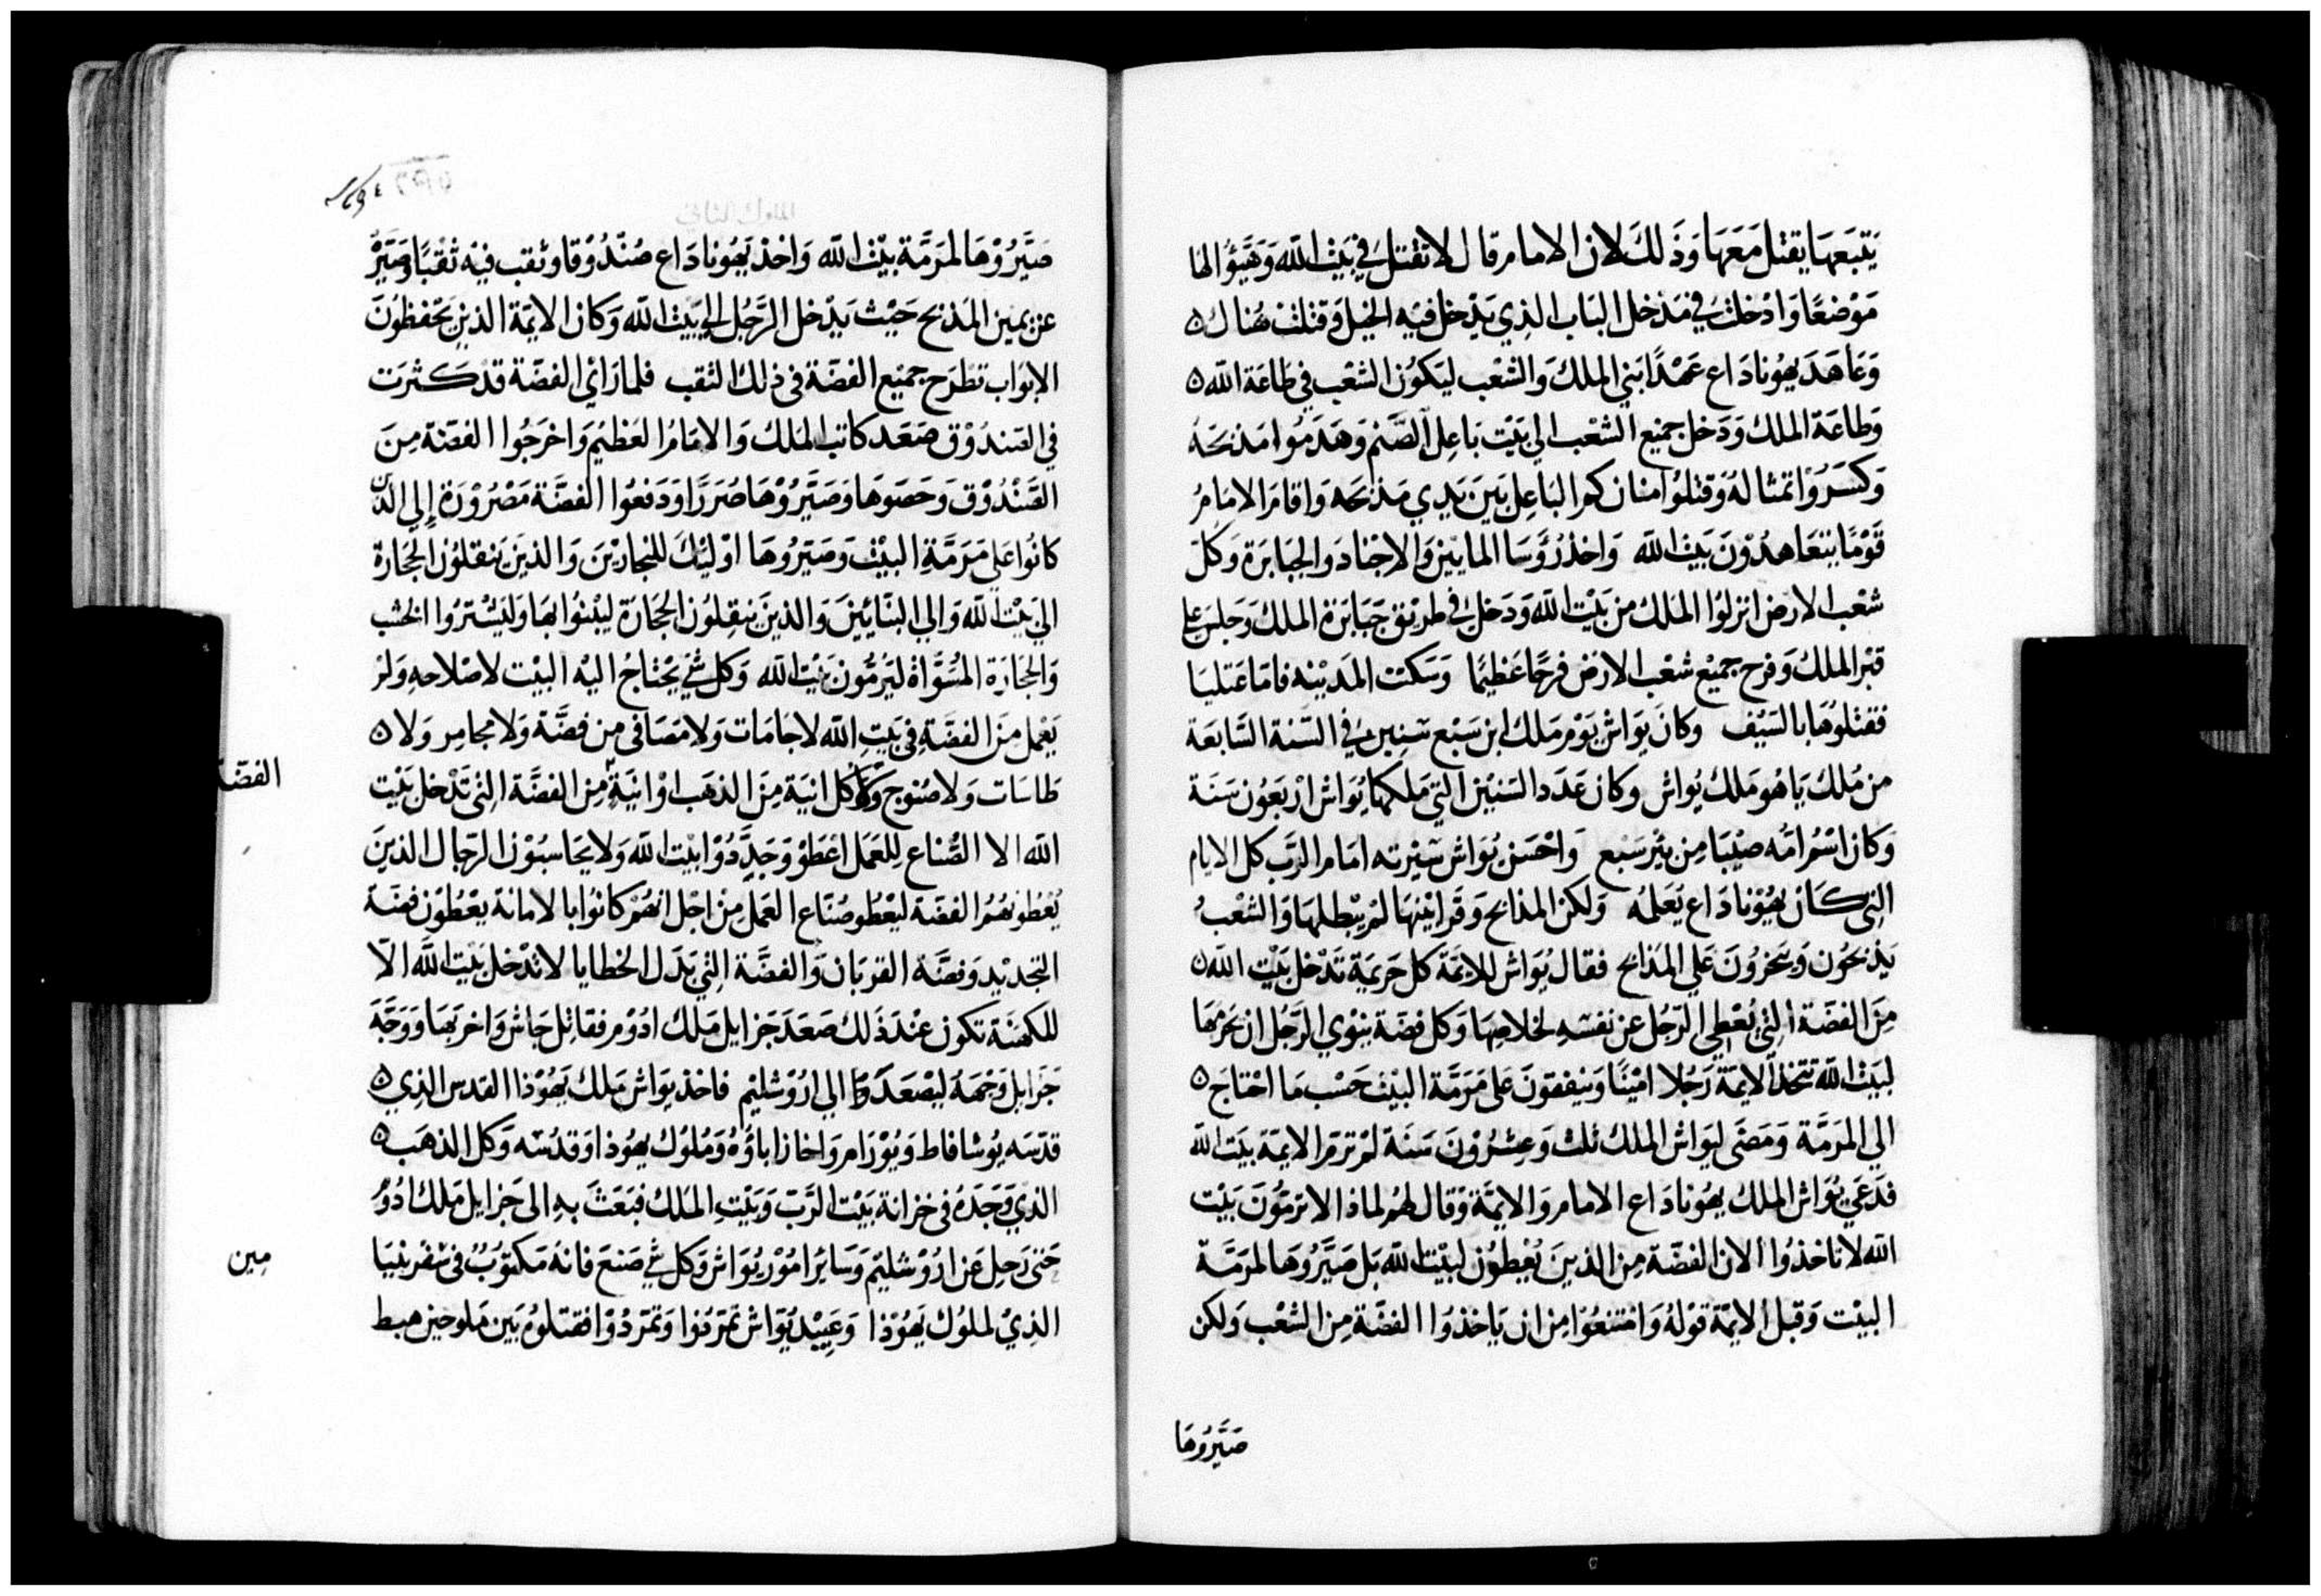 يَتبَعهَا يقتل مَعَهَا وَذَلكَ لان الامام قال لا تقتل في بَيْت الله وَهَيَّوُا لهَا
مَوْضعًا وَادْخلتْ في مَدْخل البَاب الذِي يَدْخل فيْه الخيل وَقتلتْ هُناك ٥
وَعَاهَدَ يهوُنادَاع عَهْدًا بَني الملك وَالشعْب ليَكوُن الشعْب في طاعَة الله ٥
وَطاعَة الملك وَدَخل جميع الشعْب الي بَيْت بَاعل الصَّنم وَهَدَموُا مَذبحَهُ
وَكسَرُوْا تمثالهُ وَقتلوُا متان كمر البَاعل بَينَ يَدي مَذبحَه وَاقامَ الامَامُ
قوْمًا يتعَاهدُوْنَ بَيت الله وَاخذ رُؤسَا المايين وَالاجْنادَ وَالجبَابرَة وَكلّ
شعْب الارض انزلوُا الملكَ من بَيْت الله وَدَخل في طريْق جَبَابرَة الملك وَجلسَ علي
قبْر الملك وَفرح جميْع شعْب الارض فرحًا عَظيْمًا وَسَكتت المَديْنه فامَا عَتليَا
فقتلوُهَا بالسَيْف وكانَ يوَاش يَوْم مَلك ابن سَبْع سَنيْن في السَّنة السَّابعَة
من مُلك يَاهُو مَلك يُواش وكان عَدَد السَنيْن التي مَلكهَا يُوَاش ارْبَعُون سَنَة
وَكان اسْمُ امّه صيْبَا من بيْر سَبْع وَاحْسَن يُوَاش سَيْرته امَام الرَّب كل الايام
التي كَان يهُوْنادَاع يُعَلمُه وَلكن المذابح وَقرَابيْنهَا لم يُبْطلهَا وَالشعْبُ
يَذبَحُون وَيبَخرُوْنَ عَلي المَذابح فقال يُوَاش للايمَّة كل حَريمَة تَدْخل بَيْت الله ٥
مِنَ الفضّة التي يُعْطي الرّجُل عن نفسهِ لخلاصِهَا وَكل فضّة يَنْوي الرَّجُل ان يحرمهَا
لبَيْت الله تتخذ الايمَّة رَجُلا امْيْنًا وَينفقوُنَ عَلى مَرَمَّة البَيْت حَسْب مَا احْتاج ٥
الي المَرَمَّة وَمَضَى ليوَاش الملك ثلث وَعِشرُوْنَ سَنَة لمْ ترمَّ الايمّة بَيت الله
فدَعَي يُوَاش الملك يهُونادَاع الامام وَالايمَّة وَقال لهُم لماذا لا ترمّوُنَ بَيْت
الله لا تاخذوُا الان الفضّة مِن الذينَ يُعْطوُن لبَيْت الله بَل صَيَّرُوهَا لمرَمَّة
البَيْت وَقبل الايمّة قوْلهُ وَامْتنعُوا مِن ان يَاخذوُا الفضّة مِن الشعْب وَلكن
صَيَّرُوهَا
صَيَّرُوْهَا لمَرَمَّة بَيْت الله وَاخذ يَهُونادَاع صُندُوْقا وَثقب فيْه ثقبًا وَصَيَّرُ
عن يمين المَذبح حَيْث يَدْخل الرَّجُل الي بَيْت الله وَكان الايمّة الذينَ يَحْفظوُنَ
الابوَاب تطرَح جميْع الفضّة في ذلك الثقب فلما رَائ الفضّة قدْ كَثرَت
في الصّندُوْق صَعَد كاتب المَلك وَالامَامُ العَظيْم وَاخرَجُوا الفضّة مِنَ
الصَّنْدُوْق وَحَصَوهَا وَصَيَّرُوْهَا صُرَرًا وَدَفعُوا الفضَّة مَصْرُوْرَة إلي الذين
كانوُا عَلي مَرَمَّةِ البَيْت وَصَيَرُوهَا اوْليْك للنجاريْنَ وَالذينَ يَنقلوُن الحجَارة
الي بَيْت الله وَالي البَنَّائينَ وَالذينَ يَنقلوُن الحجَارَة ليبْنوُا بهَا وَليَشْتروُا الخشب
وَالحجَارَة المُسَوَّاة ليَرمُّون بَيْت الله وَكل شي يَحْتاجُ اليْه البَيْت لاصْلاحهِ وَلم
يَعْمل منَ الفضّةِ في بَيتِ الله لا جَامَات وَلا مَصَافى من فضَّة وَلا مجامِر وَلا ٥
طاسَات وَلا صُنوُج وَلا كل انيَة مِنَ الذهَب اوْ انيَة من الفضَّة التي تَدْخل بَيْت
الفضّة
الله الا الصُّناع للعَمَل اعْطَوْ وَجَدَّدُوْا بَيْت الله وَلا يحَاسبُوْن الرّجَال الذينَ
يُعْطونهُمُ الفضّة ليُعْطُو صُنّاع العَمَل مِنْ اجْل انهُمْ كانوُا بالامانة يعْطوُن فضّة
التجديْد وَفضَّة القربَان وَالفضَّة التي بَدَل الخطايا لا تدْخل بَيْت الله الّا
للكهنَة تكون عنْدَ ذَلك صَعَدَ جَزايل مَلك ادُوْم فقاتل جَاش وَاخربَهَا وَوَجَّهَ
جَزايل وَجْهَهُ ليَصْعَدَ الي ارُوْشليْم فاخذ يوَاش مَلك يَهُوْذا القدس الذِي ٥
قدّسَه يُوشافاط وَيُوْرَام وَاخازا باؤهُ وَمُلوُك يهُوذا وَقدْسَه وَكل الذهَب ٥
الذي وَجَدَهُ في خزانة بَيْت الرَّبّ وَبَيْتِ المَلك فبَعَثَ بهِ الى جَزايل مَلك ادُوْ
حَتي رَحل عَن ارُوْشليْم وَسَائرُ امُوْر يُوَاش وَكل شي صَنعَ فانهُ مَكتوُبٌ في سفر بنيَا
مين
الذيْ لملوُك يَهُوْذا وَعَبيْد يُوَاش تمَرّدُوا وَتمَرّدُوْا فقتلوُهُ بَين مَلو حين هبط